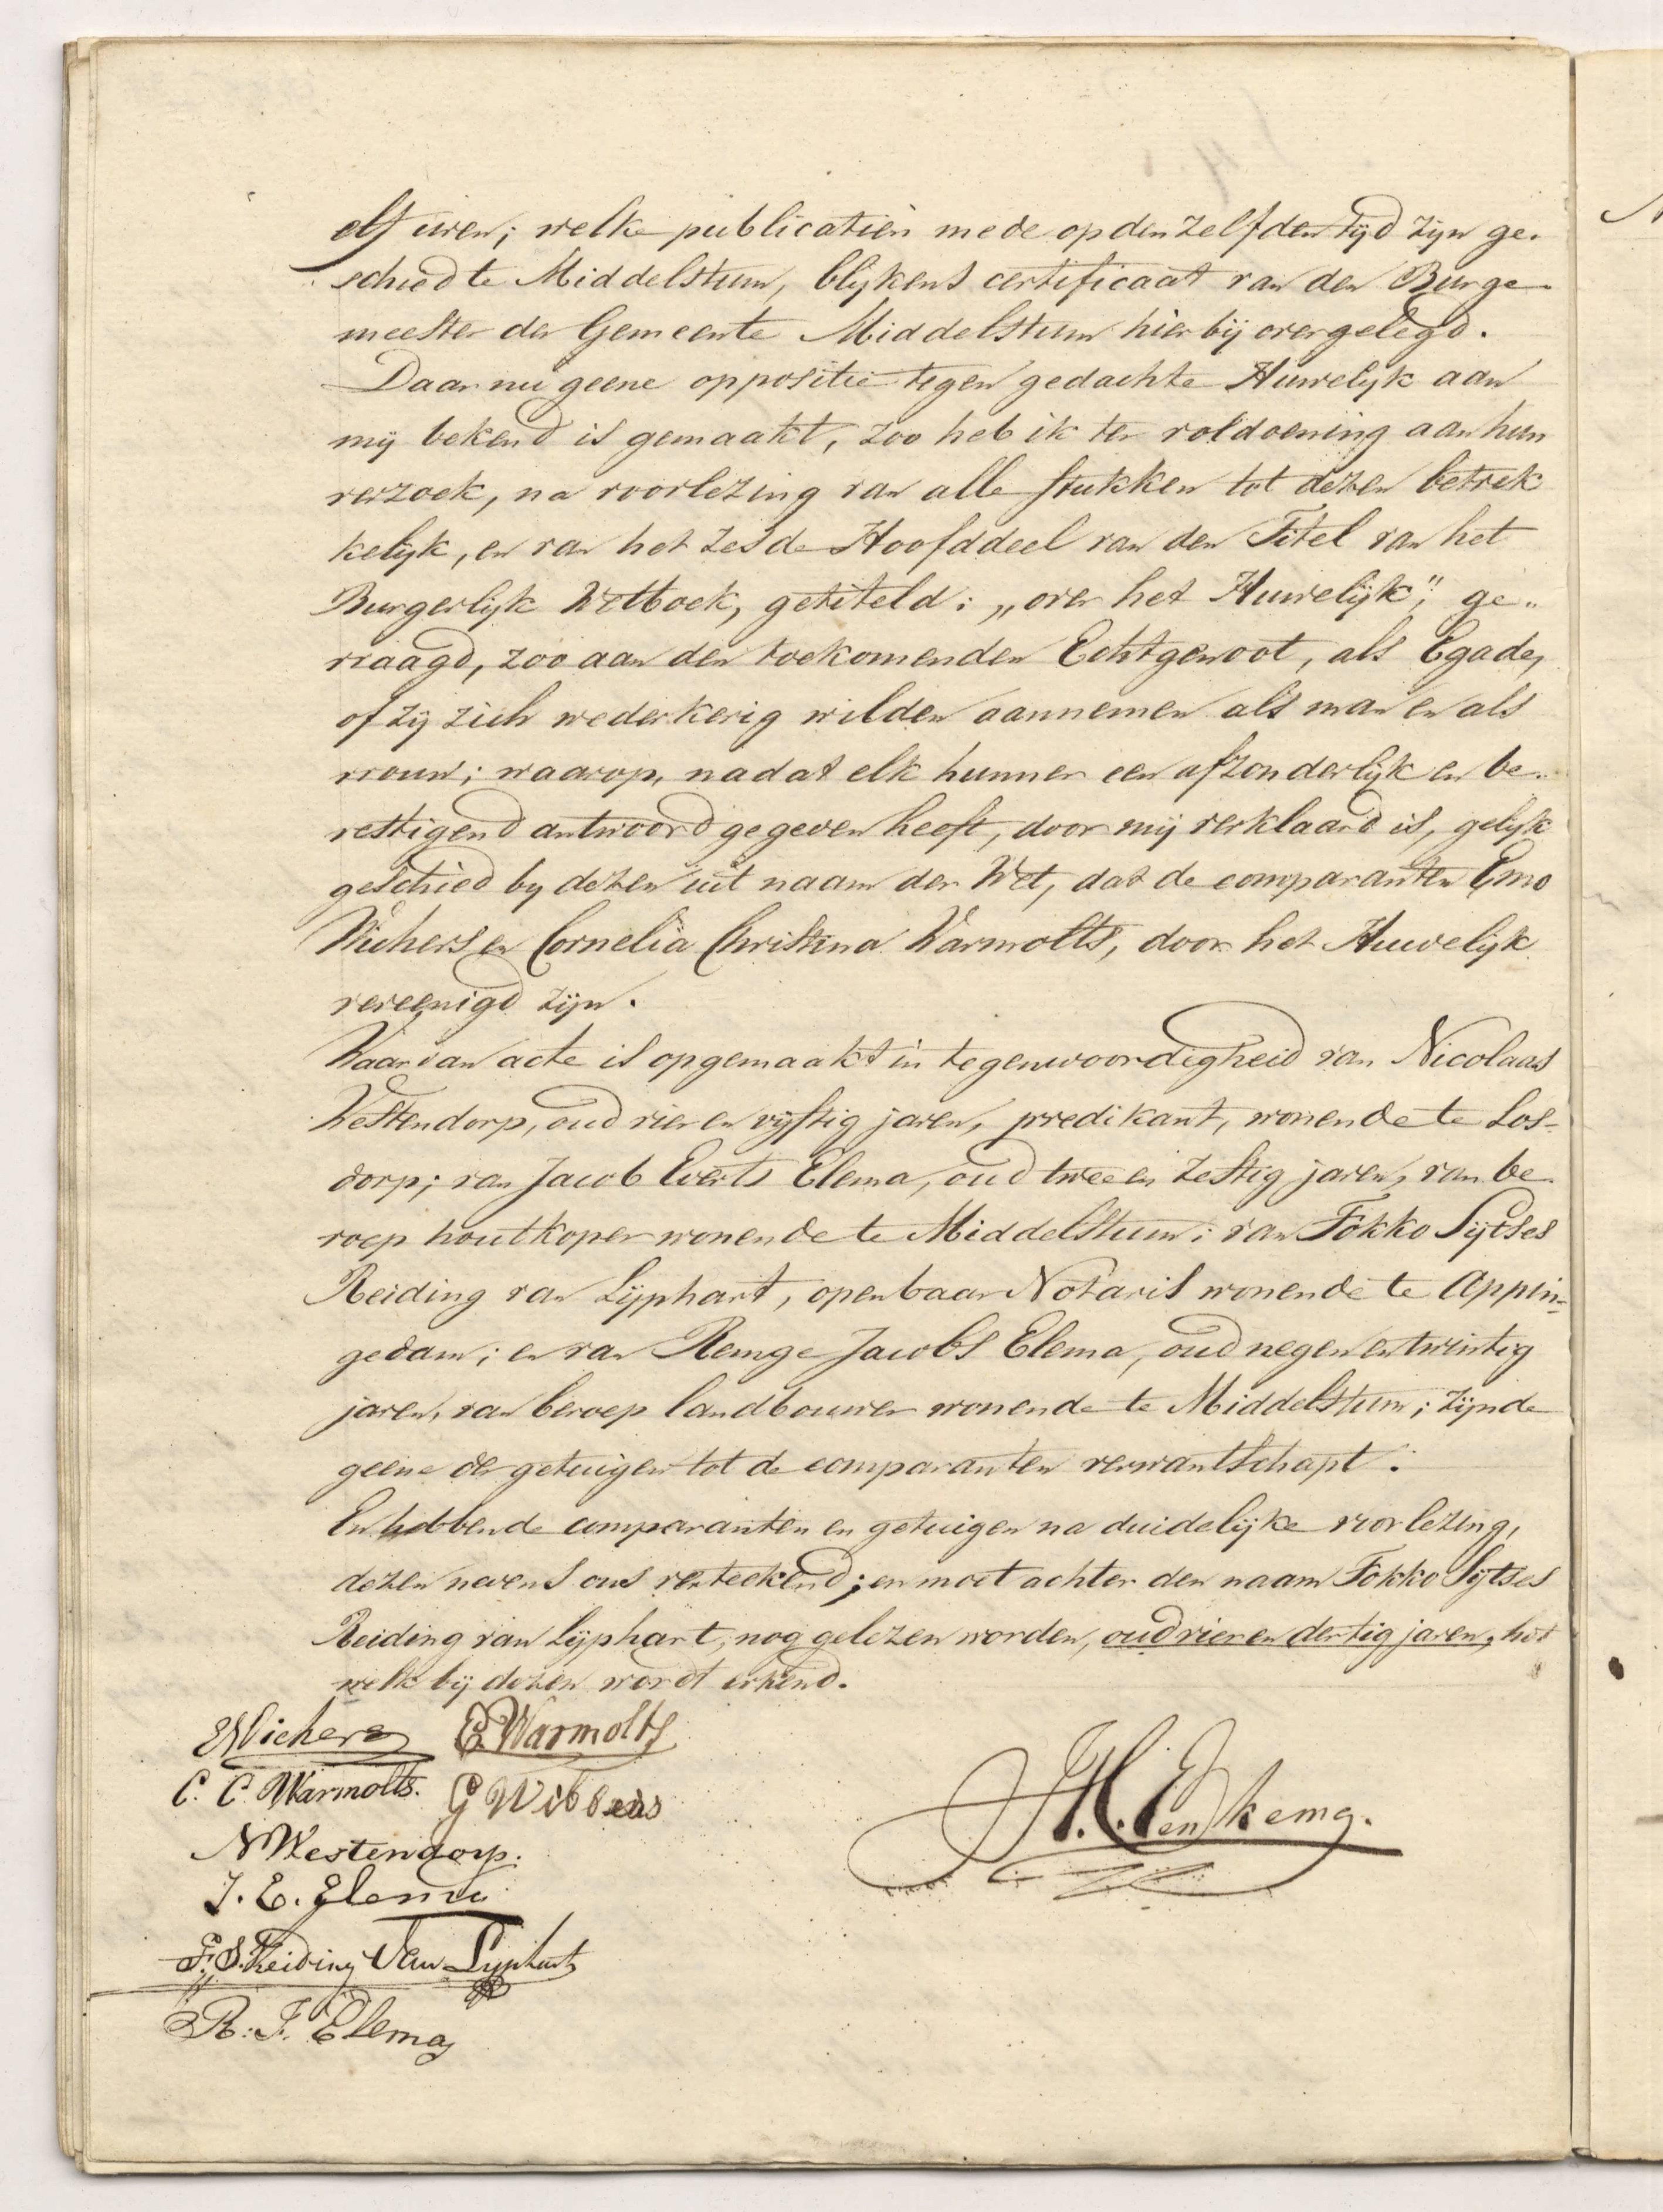 elf uren; welke publicatiën mede op den zelfden tijd zijn ge-
schied te Middelstum, blijkens certificaat van den Burge-
meester der Gemeente Middelstum hier bij overgelegd.
Daar nu geene oppositie tegen gedachte Huwelijk aan
mij bekend is gemaakt, zoo heb ik ter voldoening aan hun
verzoek, na voorlezing van alle stukken tot dezen betrek
kelijk, en van het zesde Hoofddeel van den Titel van het
Burgerlijk Wetboek, getiteld: „over het Huwelijk", ge-
vraagd, zoo aan den toekomenden Echtgenoot, als Egade,
of zij zich wederkerig wilden aannemen als man en als
vrouw; waarop, nadat elk hunner een afzonderlijk en be-
vestigend antwoord gegeven heeft, door mij verklaard is, gelijk
geschied by dezen uit naam der Wet, dat de comparanten Emo
Wichers en Cornelia Christina Warmolts, door het Huwelijk
vereenigd zijn.
Waarvan acte is opgemaakt in tegenwoordigheid van Nicolaas
Westendorp, oud vier en vijftig jaren, predikant, wonende te Los-
dorp; van Jacob Everts Elema, oud twee en zestig jaren, van be-
roep houtkoper wonende te Middelstum; van Fokko Sijtses
Reiding van Lijphart, openbaar Notaris wonende te Appin-
gedam; en van Remge Jacobs Elema, oud negen en twintig
jaren, van beroep landbouwer wonende te Middelstum; zijnde
geene der getuigen tot de comparanten verwantschapt.
En hebben de comparanten en getuigen na duidelijke voorlezing,
dezen nevens ons verteekend; en moet achter den naam Fokko Sijtses
Reiding van Lijphart, nog gelezen worden, oud vier en dertig jaren, het
welk bij dezen wordt erkend.
EWichers E. Warmolts
C. C. Warmolts. G Wibbens
N Westendorp.
J. E. Elema
F. S. Reiding Van Lijphart
R. J. Elema